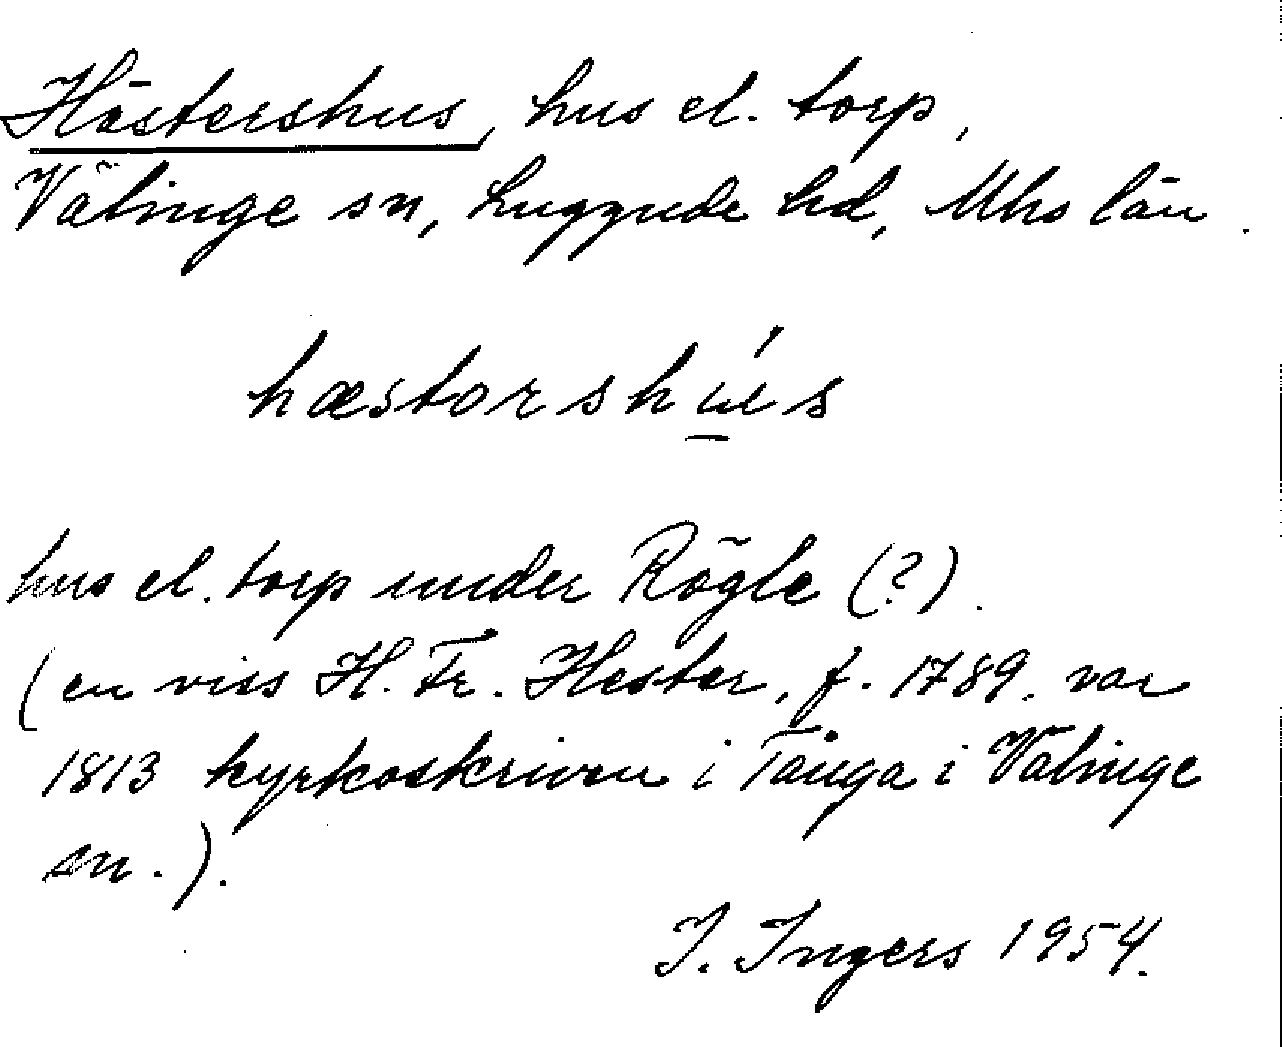 Hästershus, hus el. torp,
Välinge sn, Luggude hd, Mhs län.
hæstorshúes
hus el. torp under Rögle (?).
(en viss H. Fr. Hester, f. 1789, var
1813 kyrkoskriven i Tånga i Välinge
sn.).
I. Ingers 1954.